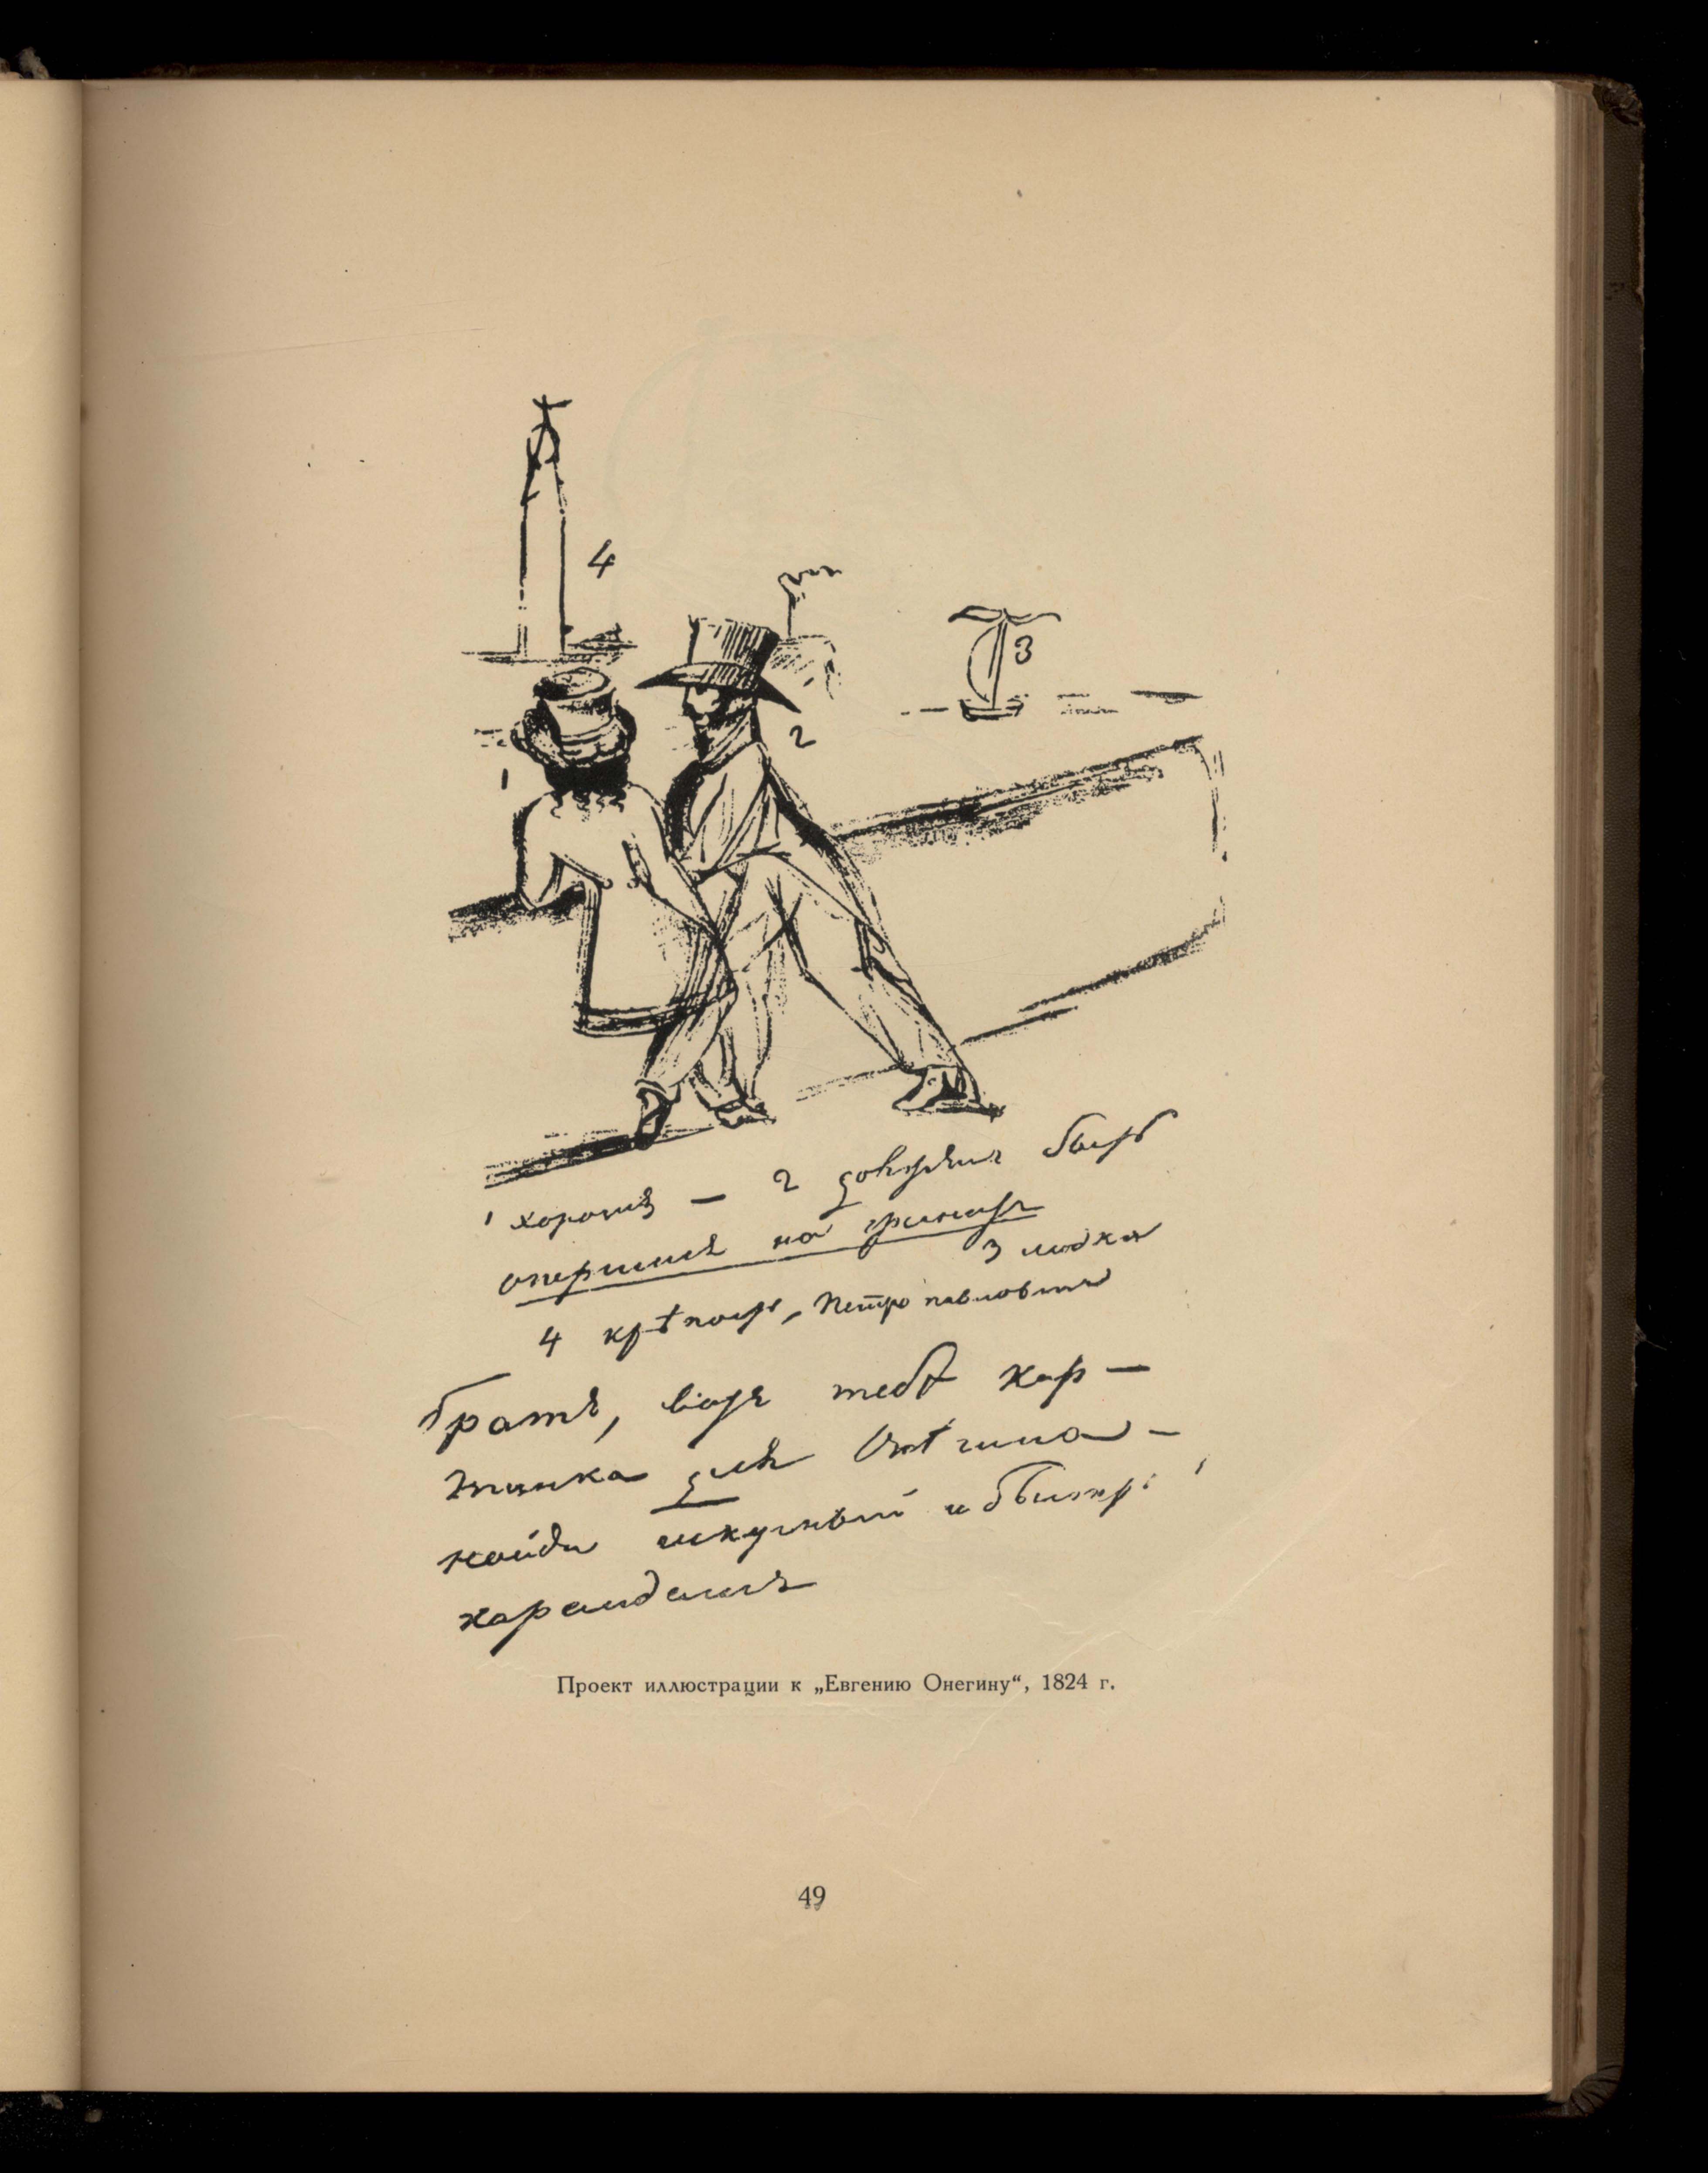 4
3
2
1
1 хорошъ — 2 долженъ быть
опершися на гранитъ
3 лодка
4 крѣпость, Петропавловская
братъ, вотъ тебѣ кар-
тинка для Онѣгина -
найди искусный и быстрый
карандашъ
Проект иллюстрации к „Евгению Онегину“, 1824 г.
49